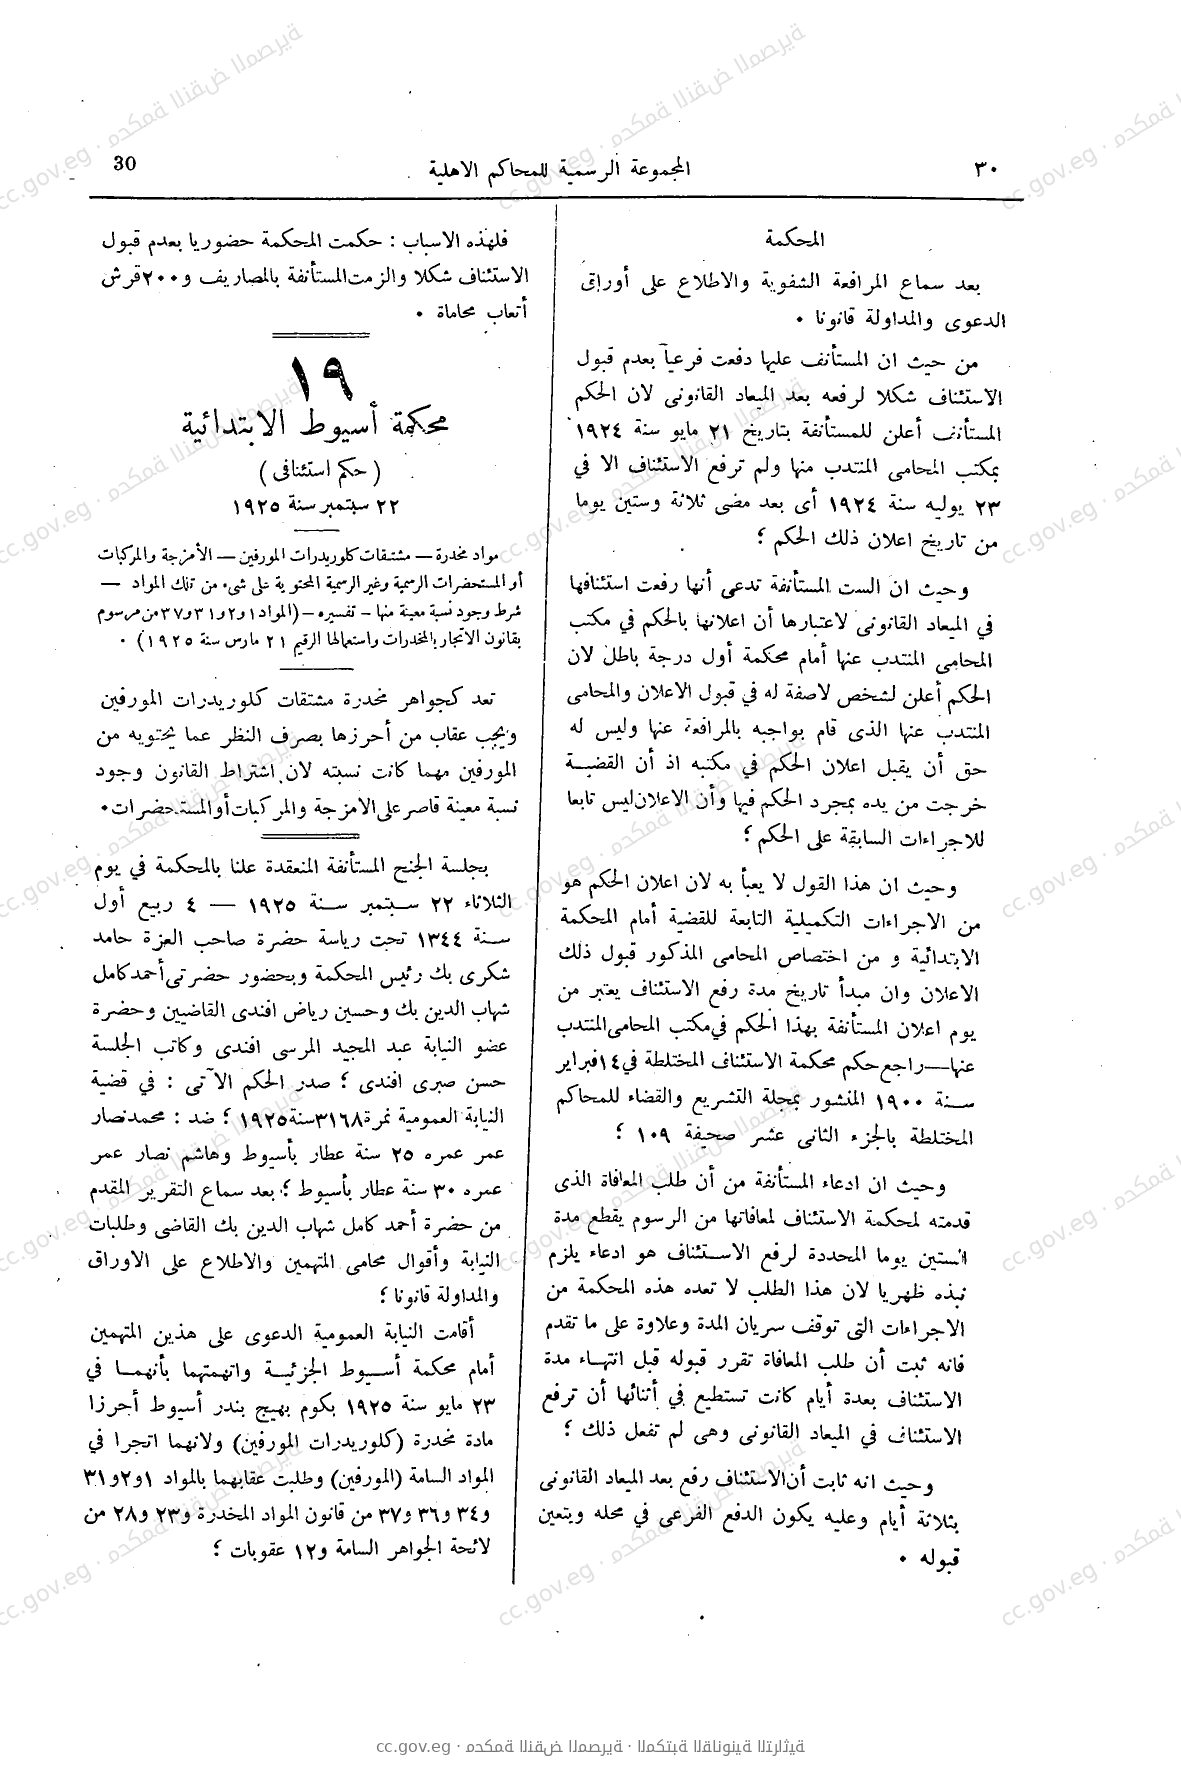 ٣٠
المجموعة الرسمية للمحاكم الاهلية
30
المحكمة
بعد سماع المرافعة الشفوية والاطلاع على أوراق
الدعوى والمداولة قانونا ٠
من حيث ان المستأنف عليها دفعت فرعياً بعدم قبول
الاستئناف شكلا لرفعه بعد الميعاد القانونى لان الحكم
المستأنف أعلن للمستأنفة بتاريخ ٢١ مايو سنة ١٩٢٤
بمكتب المحامى المنتدب منها ولم ترفع الاستئناف الا في
٢٣ يوليه سنة ١٩٢٤ أى بعد مضى ثلاثة وستين يوما
من تاريخ اعلان ذلك الحكم ؛
وحيث ان الست المستأنفة تدعى أنها رفعت استئنافها
في الميعاد القانونى لاعتبارها أن اعلانها بالحكم في مكتب
المحامى المنتدب عنها أمام محكمة أول درجة باطل لان
الحكم أعلن لشخص لاصفة له في قبول الاعلان والمحامى
المنتدب عنها الذى قام بواجبه بالمرافعة عنها وليس له
حق أن يقبل اعلان الحكم في مكتبه اذ أن القضية
خرجت من يده بمجرد الحكم فيها وأن الاعلان ليس تابعا
للاجراءات السابقة على الحكم ؛
وحيث ان هذا القول لا يعبأ به لان اعلان الحكم هو
من الاجراءات التكميلية التابعة للقضية أمام المحكمة
الابتدائية و من اختصاص المحامى المذكور قبول ذلك
الاعلان وان مبدأ تاريخ مدة رفع الاستئناف يعتبر من
يوم اعلان المستأنفة بهذا الحكم في مكتب المحامى المنتدب
عنها—راجع حكم محكمة الاستئناف المختلطة في ١٤ فبراير
سنة ١٩٠٠ المنشور بمجلة التشريع والقضاء للمحاكم
المختلطة بالجزء الثانى عشر صحيفة ١٠٩ ؛
وحيث ان ادعاء المستأنفة من أن طلب المعافاة الذى
قدمته لمحكمة الاستئناف لمعافاتها من الرسوم يقطع مدة
الستين يوما المحددة لرفع الاستئناف هو ادعاء يلزم
نبذه ظهريا لان هذا الطلب لا تعده هذه المحكمة من
الاجراءات التى توقف سريان المدة وعلاوة على ما تقدم
فانه ثبت أن طلب المعافاة تقرر قبوله قبل انتهاء مدة
الاستئناف بعدة أيام كانت تستطيع في أثنائها أن ترفع
الاستئناف في الميعاد القانونى وهى لم تفعل ذلك ؛
وحيث انه ثابت أن الاستئناف رفع بعد الميعاد القانونى
بثلاثة أيام وعليه يكون الدفع الفرعى في محله ويتعين
قبوله ٠
فلهذه الاسباب : حكمت المحكمة حضوريا بعدم قبول
الاستئناف شكلا والزمت المستأنفة بالمصاريف و٢٠٠ قرش
أتعاب محاماة ٠
١٩
محكمة أسيوط الابتدائية
( حكم استئنافى )
٢٢ سبتمبر سنة ١٩٢٥
مواد مخدرة — مشتقات كلوريدرات المورفين — الأمزجة والمركبات
أو المستحضرات الرسمية وغير الرسمية المحتوية على شىء من تلك المواد —
شرط وجود نسبة معينة منها – تفسيره – (المواد ١و٢و٣١و٣٧ من مرسوم
بقانون الاتجار بالمخدرات واستعمالها الرقيم ٢١ مارس سنة ١٩٢٥) ٠
تعد كجواهر مخدرة مشتقات كلوريدرات المورفين
ويجب عقاب من أحرزها بصرف النظر عما يحتويه من
المورفين مهما كانت نسبته لان اشتراط القانون وجود
نسبة معينة قاصر على الامزجة والمركبات أو المستحضرات ٠
بجلسة الجنح المستأنفة المنعقدة علنا بالمحكمة في يوم
الثلاثاء ٢٢ سبتمبر سنة ١٩٢٥ — ٤ ربيع أول
سنة ١٣٤٤ تحت رياسة حضرة صاحب العزة حامد
شكرى بك رئيس المحكمة وبحضور حضرتى أحمد كامل
شهاب الدين بك وحسين رياض افندى القاضيين وحضرة
عضو النيابة عبد المجيد المرسى افندى وكاتب الجلسة
حسن صبرى افندى ؛ صدر الحكم الآتى : في قضية
النيابة العمومية نمرة ٣١٦٨ سنة ١٩٢٥ ؛ ضد : محمد نصار
عمر عمره ٢٥ سنة عطار بأسيوط وهاشم نصار عمر
عمره ٣٠ سنة عطار بأسيوط ؛ بعد سماع التقرير المقدم
من حضرة أحمد كامل شهاب الدين بك القاضى وطلبات
النيابة وأقوال محامى المتهمين والاطلاع على الاوراق
والمداولة قانونا ؛
أقامت النيابة العمومية الدعوى على هذين المتهمين
أمام محكمة أسيوط الجزئية واتهمتهما بأنهما في
٢٣ مايو سنة ١٩٢٥ بكوم بهيج بندر أسيوط أحرزا
مادة مخدرة (كلوريدرات المورفين) ولانهما اتجرا في
المواد السامة (المورفين) وطلبت عقابهما بالمواد ١و٢و٣١
و٣٤ و٣٦ و٣٧ من قانون المواد المخدرة و٢٣ و٢٨ من
لائحة الجواهر السامة و١٢ عقوبات ؛
cc.gov.eg · محكمة النقض المصرية · المكتبة القانونية التراثية